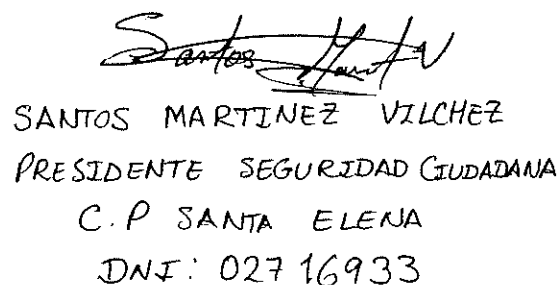 Santos Mart V
SANTOS MARTINEZ VILCHEZ
PRESIDENTE SEGURIDAD CIUDADANA
C.P SANTA ELENA
DNI: 02716933